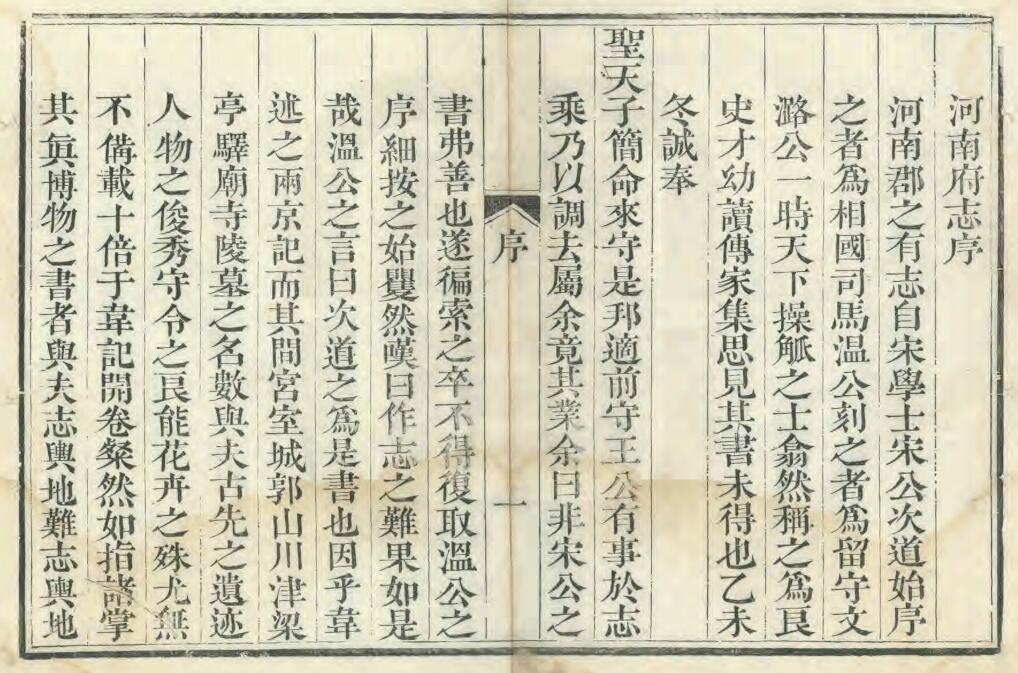 河南府志序
河南郡之有志自宋學士宋公次道始序
之者爲相國司馬温公刻之者爲留守文
潞公一時天下操觚之士翕然稱之爲良
史才幼讀傳家集思見其書未得也乙未
冬誠奉
聖天子簡命來守是邦適前守王公有事於志
乘乃以調去屬余竟其業余曰非宋公之
序 一
書弗善也遂徧索之卒不得復取溫公之
序細按之始矍然嘆曰作志之難果如是
哉溫公之言曰次道之爲是書也因乎韋
述之兩京記而其間宮室城郭山川津梁
亭驛廟寺陵墓之名數與夫古先之遺迹
人物之俊秀守令之良能花卉之殊尤無
不備載十倍于韋記開卷粲然如指諸掌
其眞博物之書者與夫志輿地難志輿地